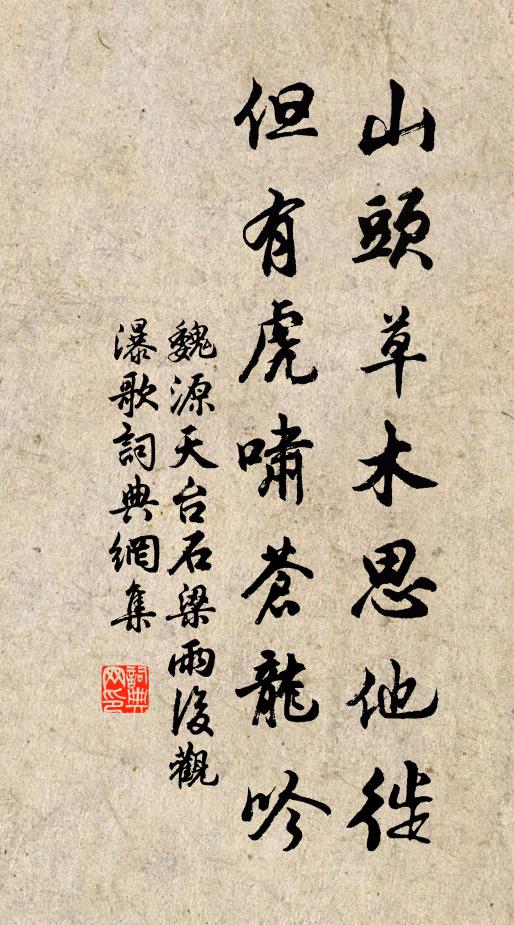 山頭草木思他徙
但有虎嘯蒼龍吟
魏源天台石梁雨後觀
瀑歌詞典網集
詞典
网印